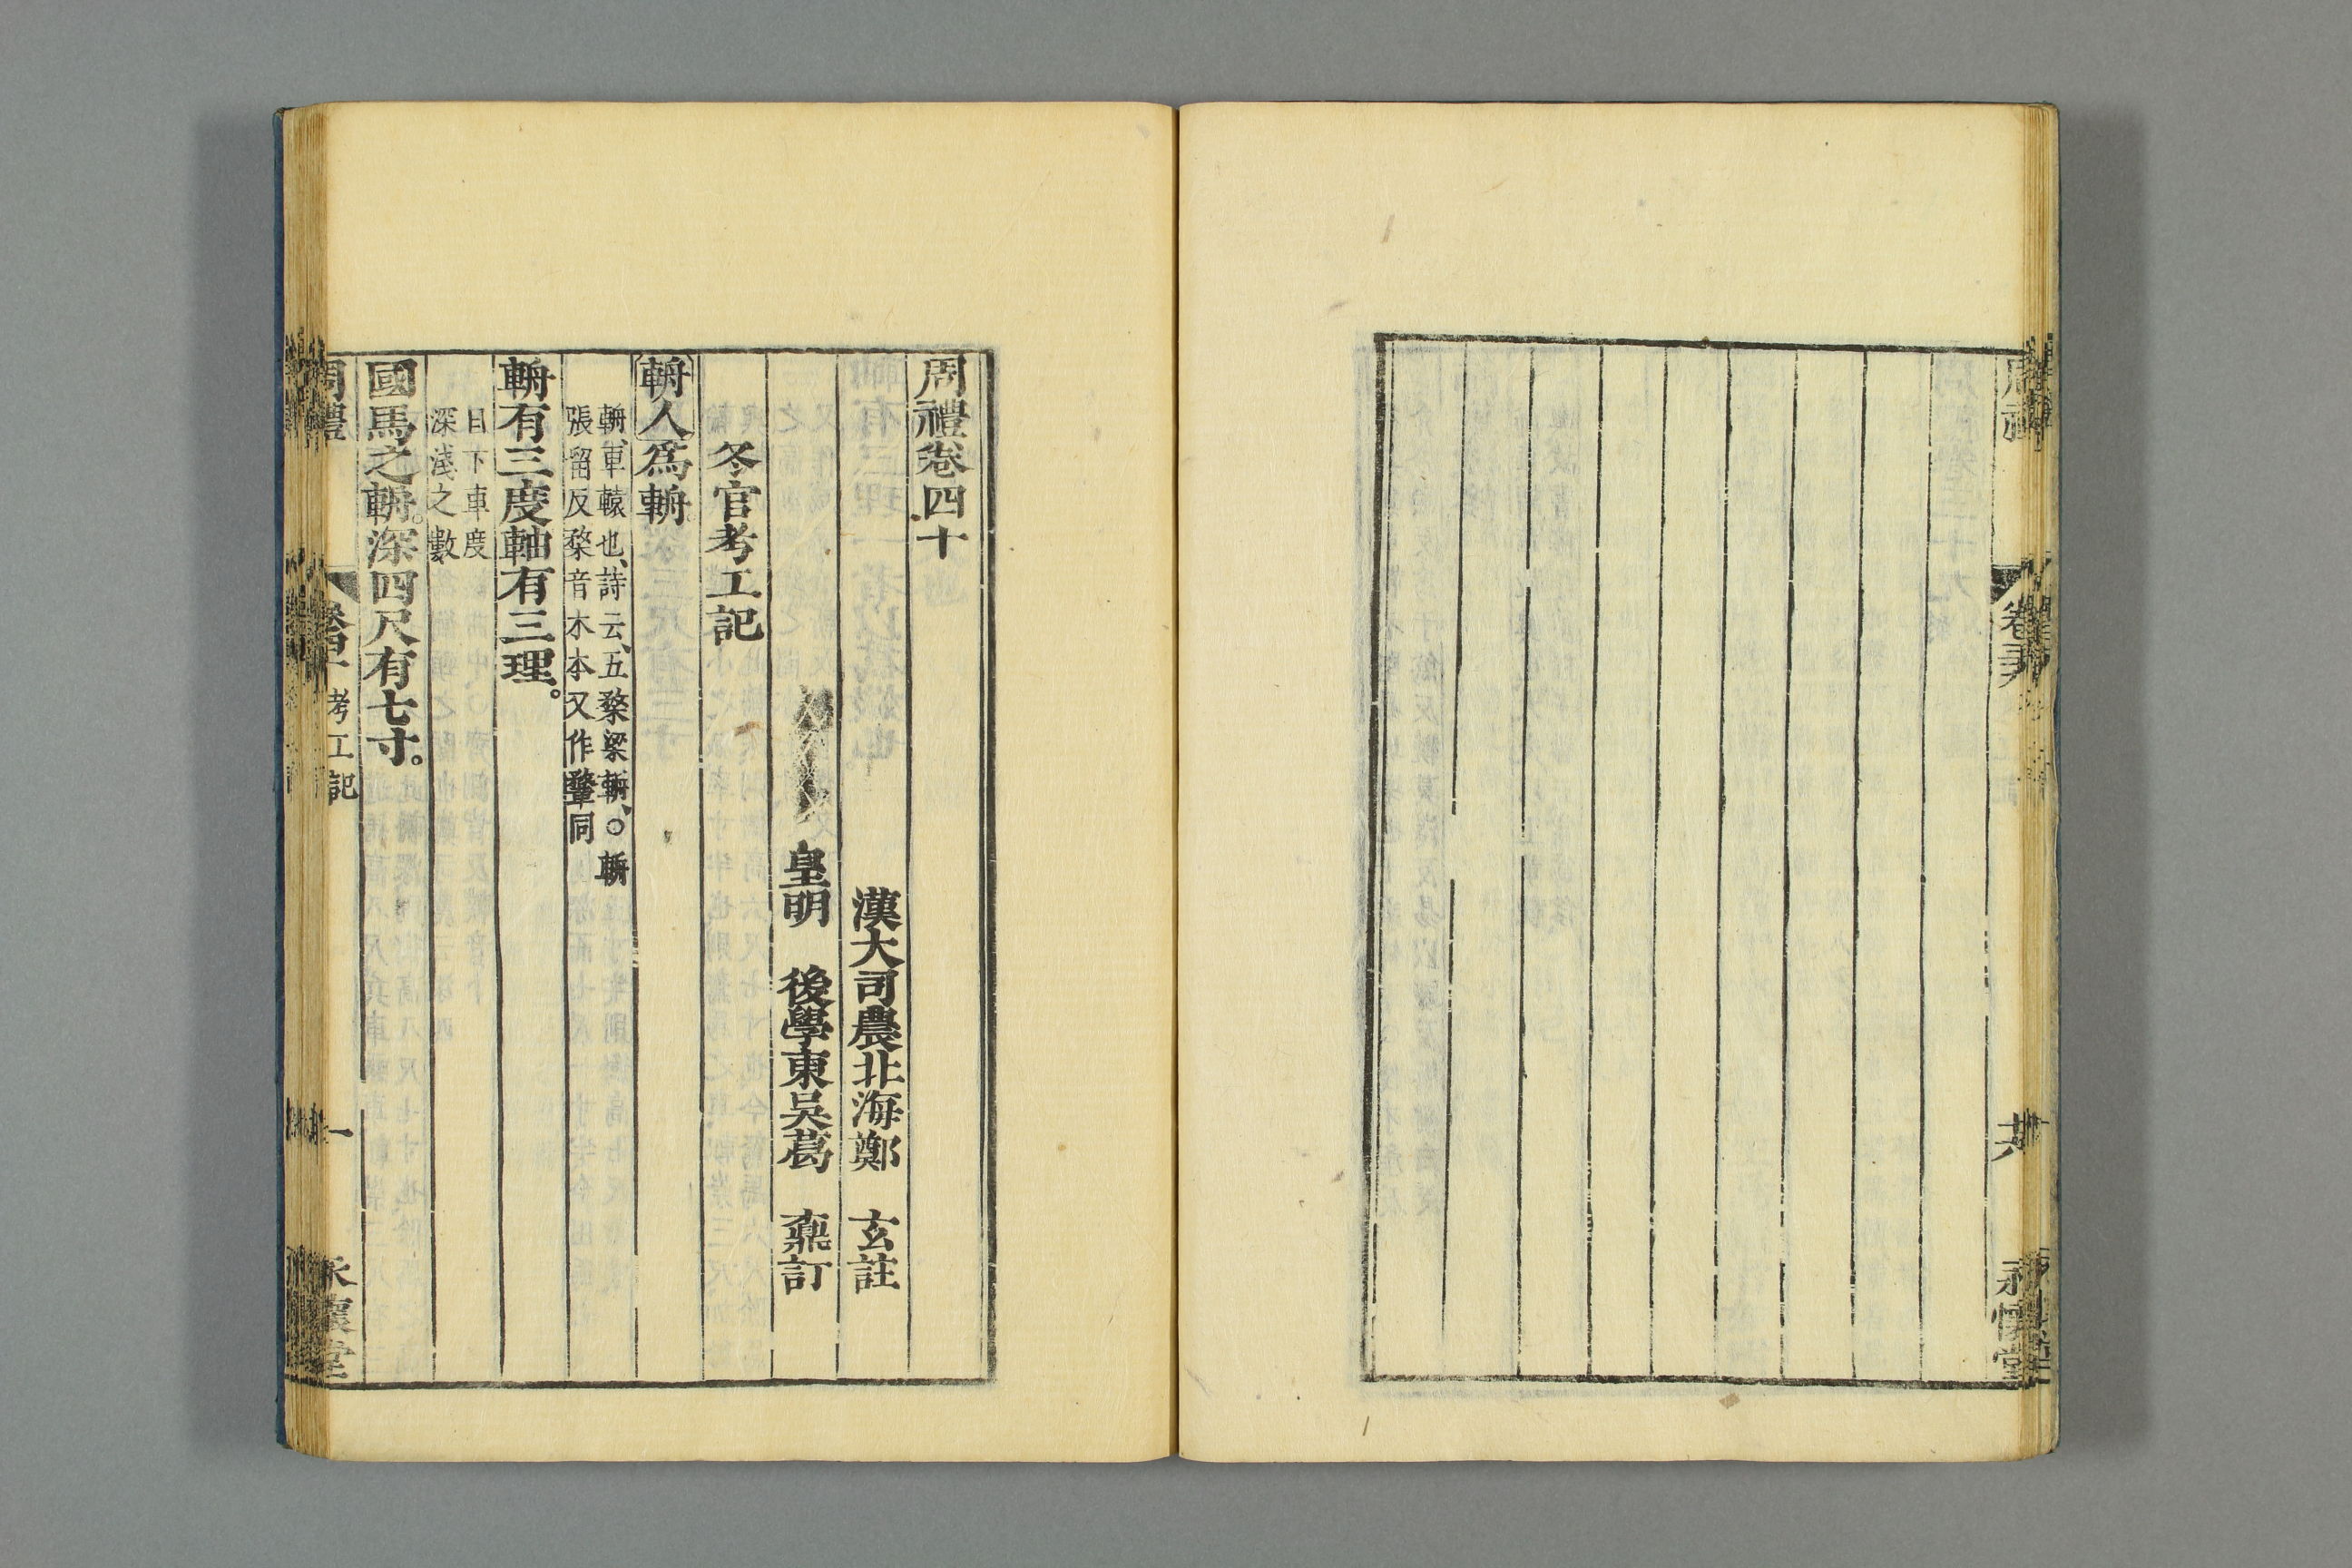 周禮卷四十
漢大司農北海鄭　玄註
皇明　後學東吳葛　鼒訂
冬官考工記
輈人爲輈。
輈、車轅也、詩云、五楘梁輈、○輈
張留反楘音木本又作鞪同
輈有三度軸有三理。
目下車度
深淺之數
國馬之輈。深四尺有七寸。
周禮
卷四十
考工記
一
永懷堂
周禮
卷
永懷堂